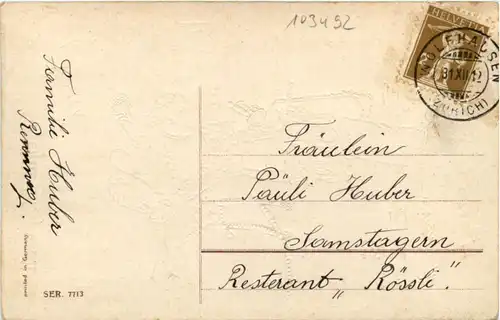 103492
HELVETIA
WOLFHAUSEN
31.XII.12
(ZÜRICH)
Familie Huber
Fräulein
Päuli Huber
Samstagern
Resterant „Rössli".
printed in Germany
SER. 7713